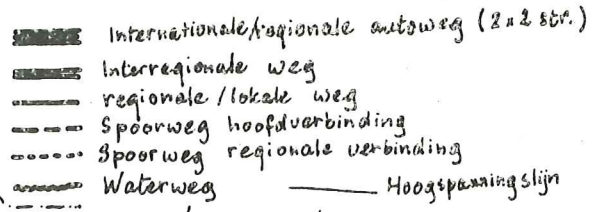 Internationale/regionale autoweg (2x2 str.)
Interregionale weg
regionale/lokale weg
Spoorweg hoofdverbinding
Spoorweg regionale verbinding
Waterweg Hoogspanningslijn